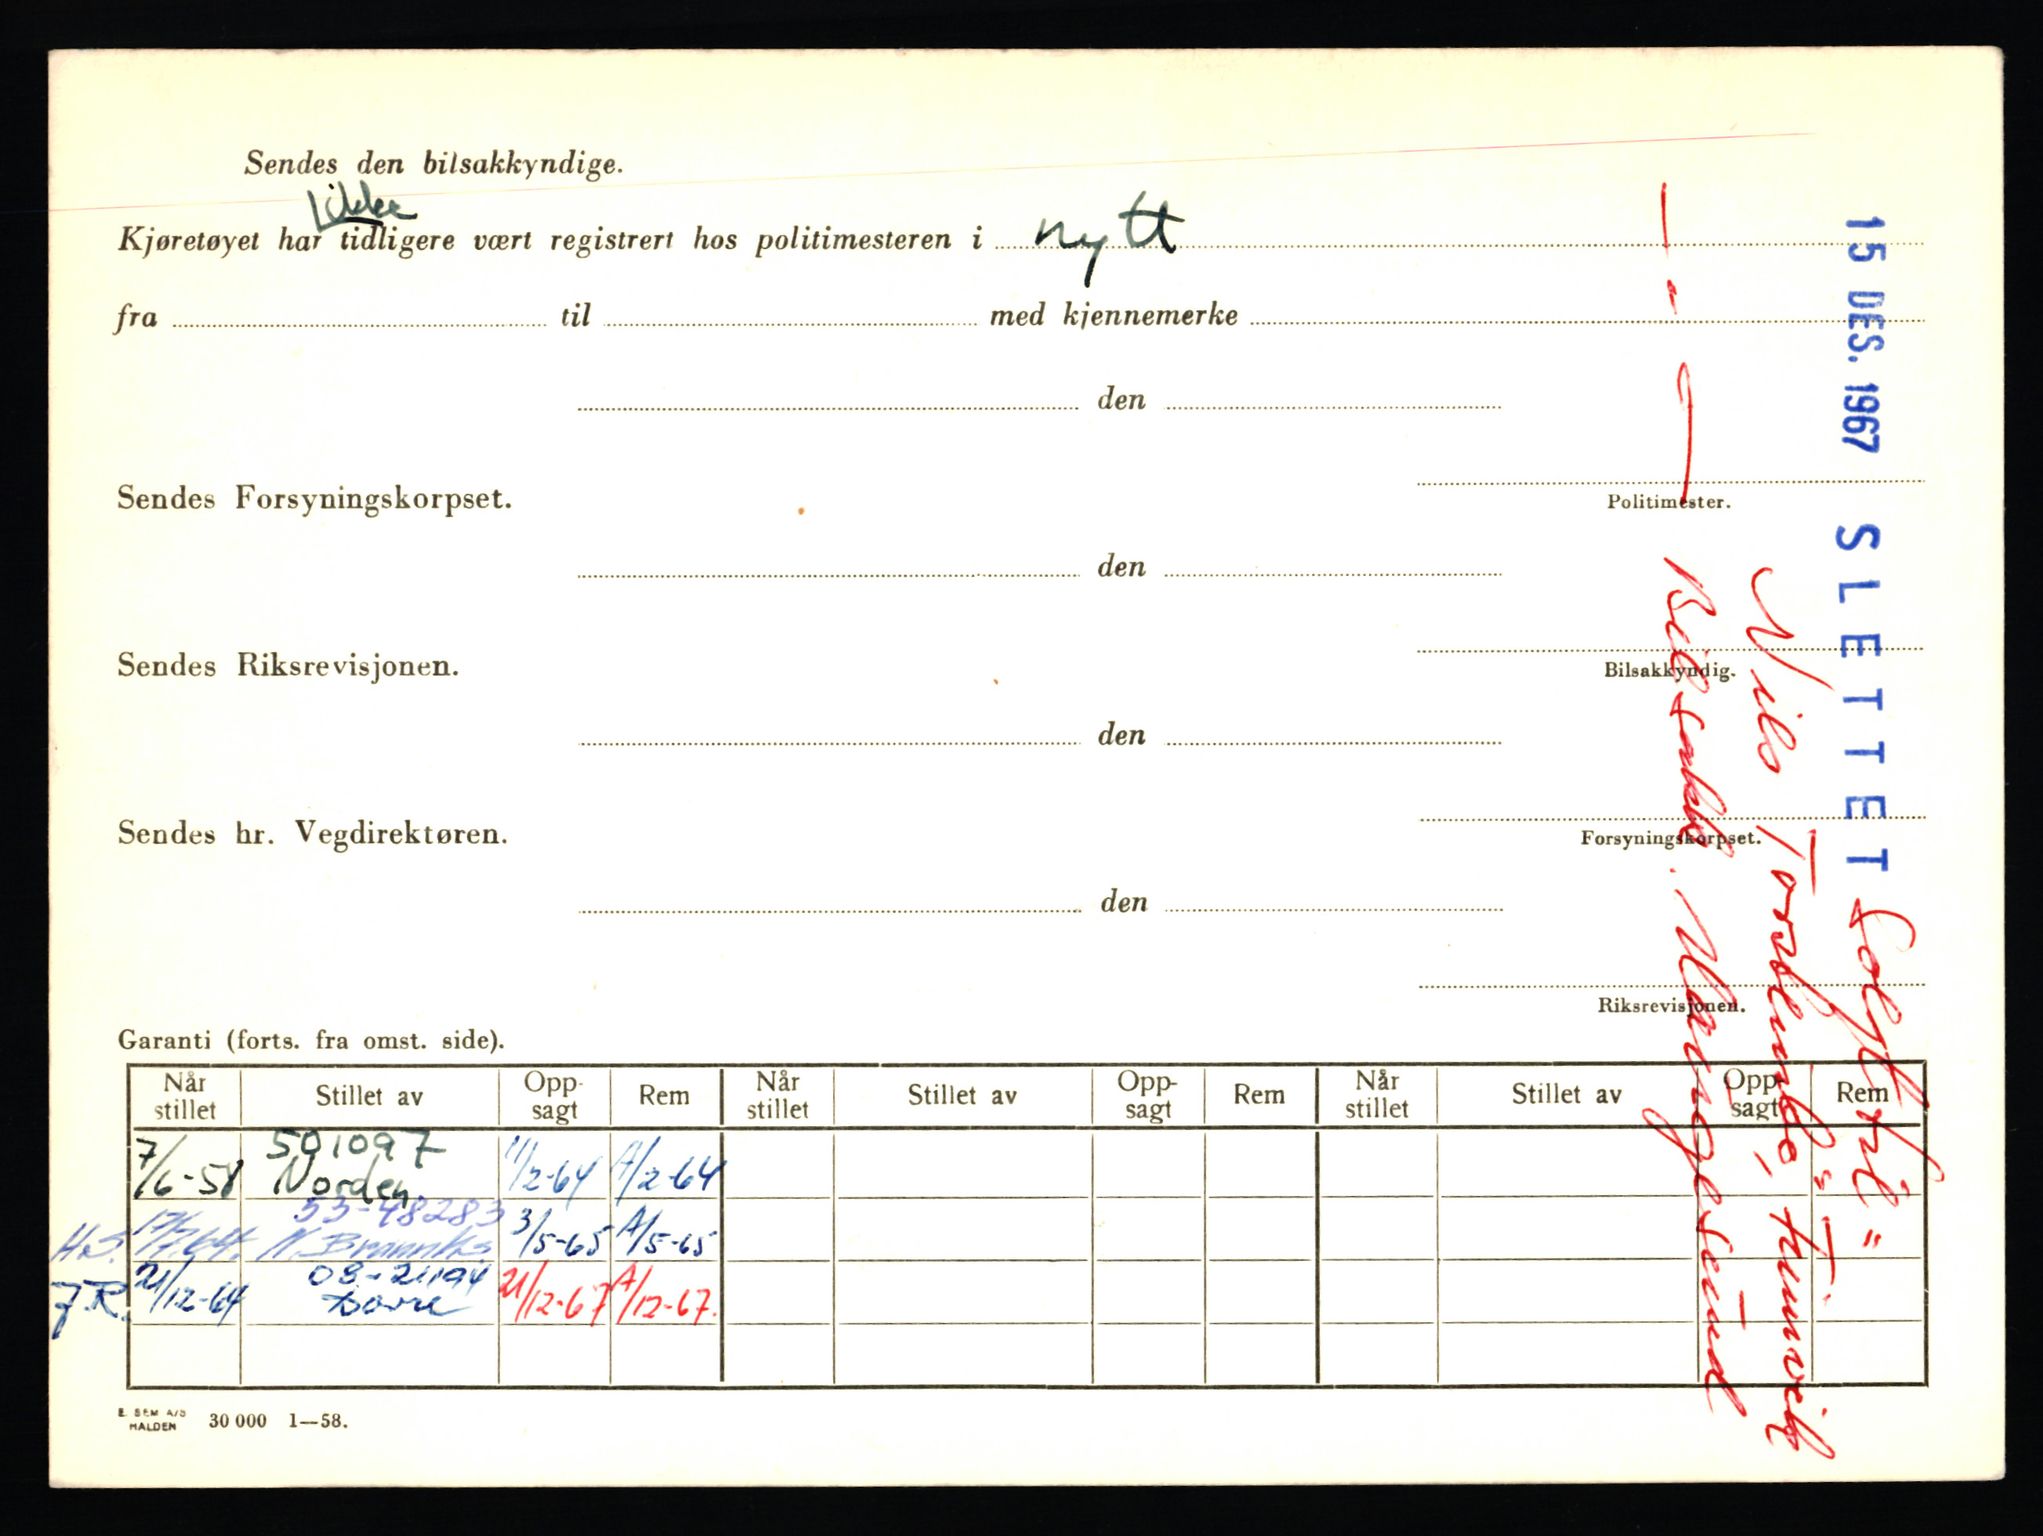 Sendes den bilsakkyndige.
ikke
Kjøretøyet har tidligere vært registrert hos politimesteren i nytt
fra til med kjennemerke
den
Politimester.
Sendes Forsyningskorpset.
den
Bilsakkyndig.
Sendes Riksrevisjonen.
den
Forsyningskorpset.
Sendes hr. Vegdirektøren.
den
Riksrevisjonen.
Garanti (forts. fra omst. side).
Når stillet Stillet av Opp-sagt Rem Når stillet Stillet av Opp-sagt Rem Når stillet Stillet av Opp-sagt Rem
501097
7/6-58 Norden 11/2-64 A/2-64
53-48283
H.S. 17/7.64. N. Brannks 3/5-65 A/5-65
08-21194
F.R. 21/12-64 Dovre 21/12-67 A/12-67.
E. SEM A/S
HALDEN
30 000 1—58.
15 DES. 1967 SLETTET
Solgt til "
Nils
Bilsakk. Haugesund